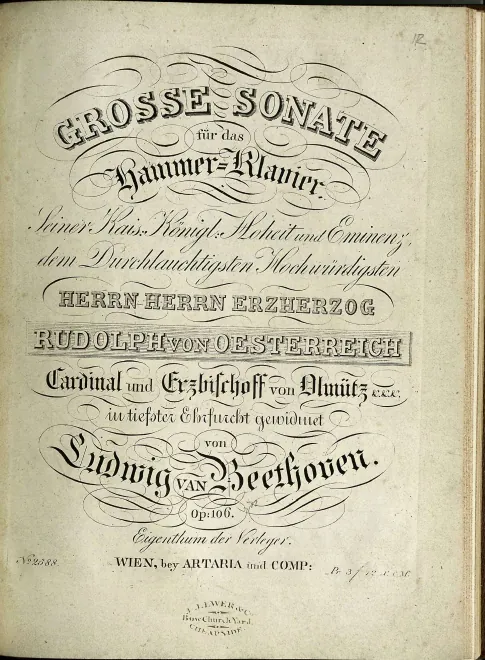 12
GROSSE SONATE
für das
Hammer=Klavier.
Seiner Kais: Königl: Hoheit und Eminenz,
dem Durchlauchtigsten Hochwürdigsten
HERRN HERRN ERZHERZOG
RUDOLPH VON OESTERREICH
Cardinal und Erzbischoff von Olmütz &.&.&.
in tiefster Ehrfurcht gewidmet
von
Ludwig VAN Beethoven.
Op: 106.
Eigenthum der Verleger.
No. 2588.
WIEN, bey ARTARIA und COMP:
Pr.
J. J. EWER & Co.
Bow Church Yard.
CHEAPSIDE